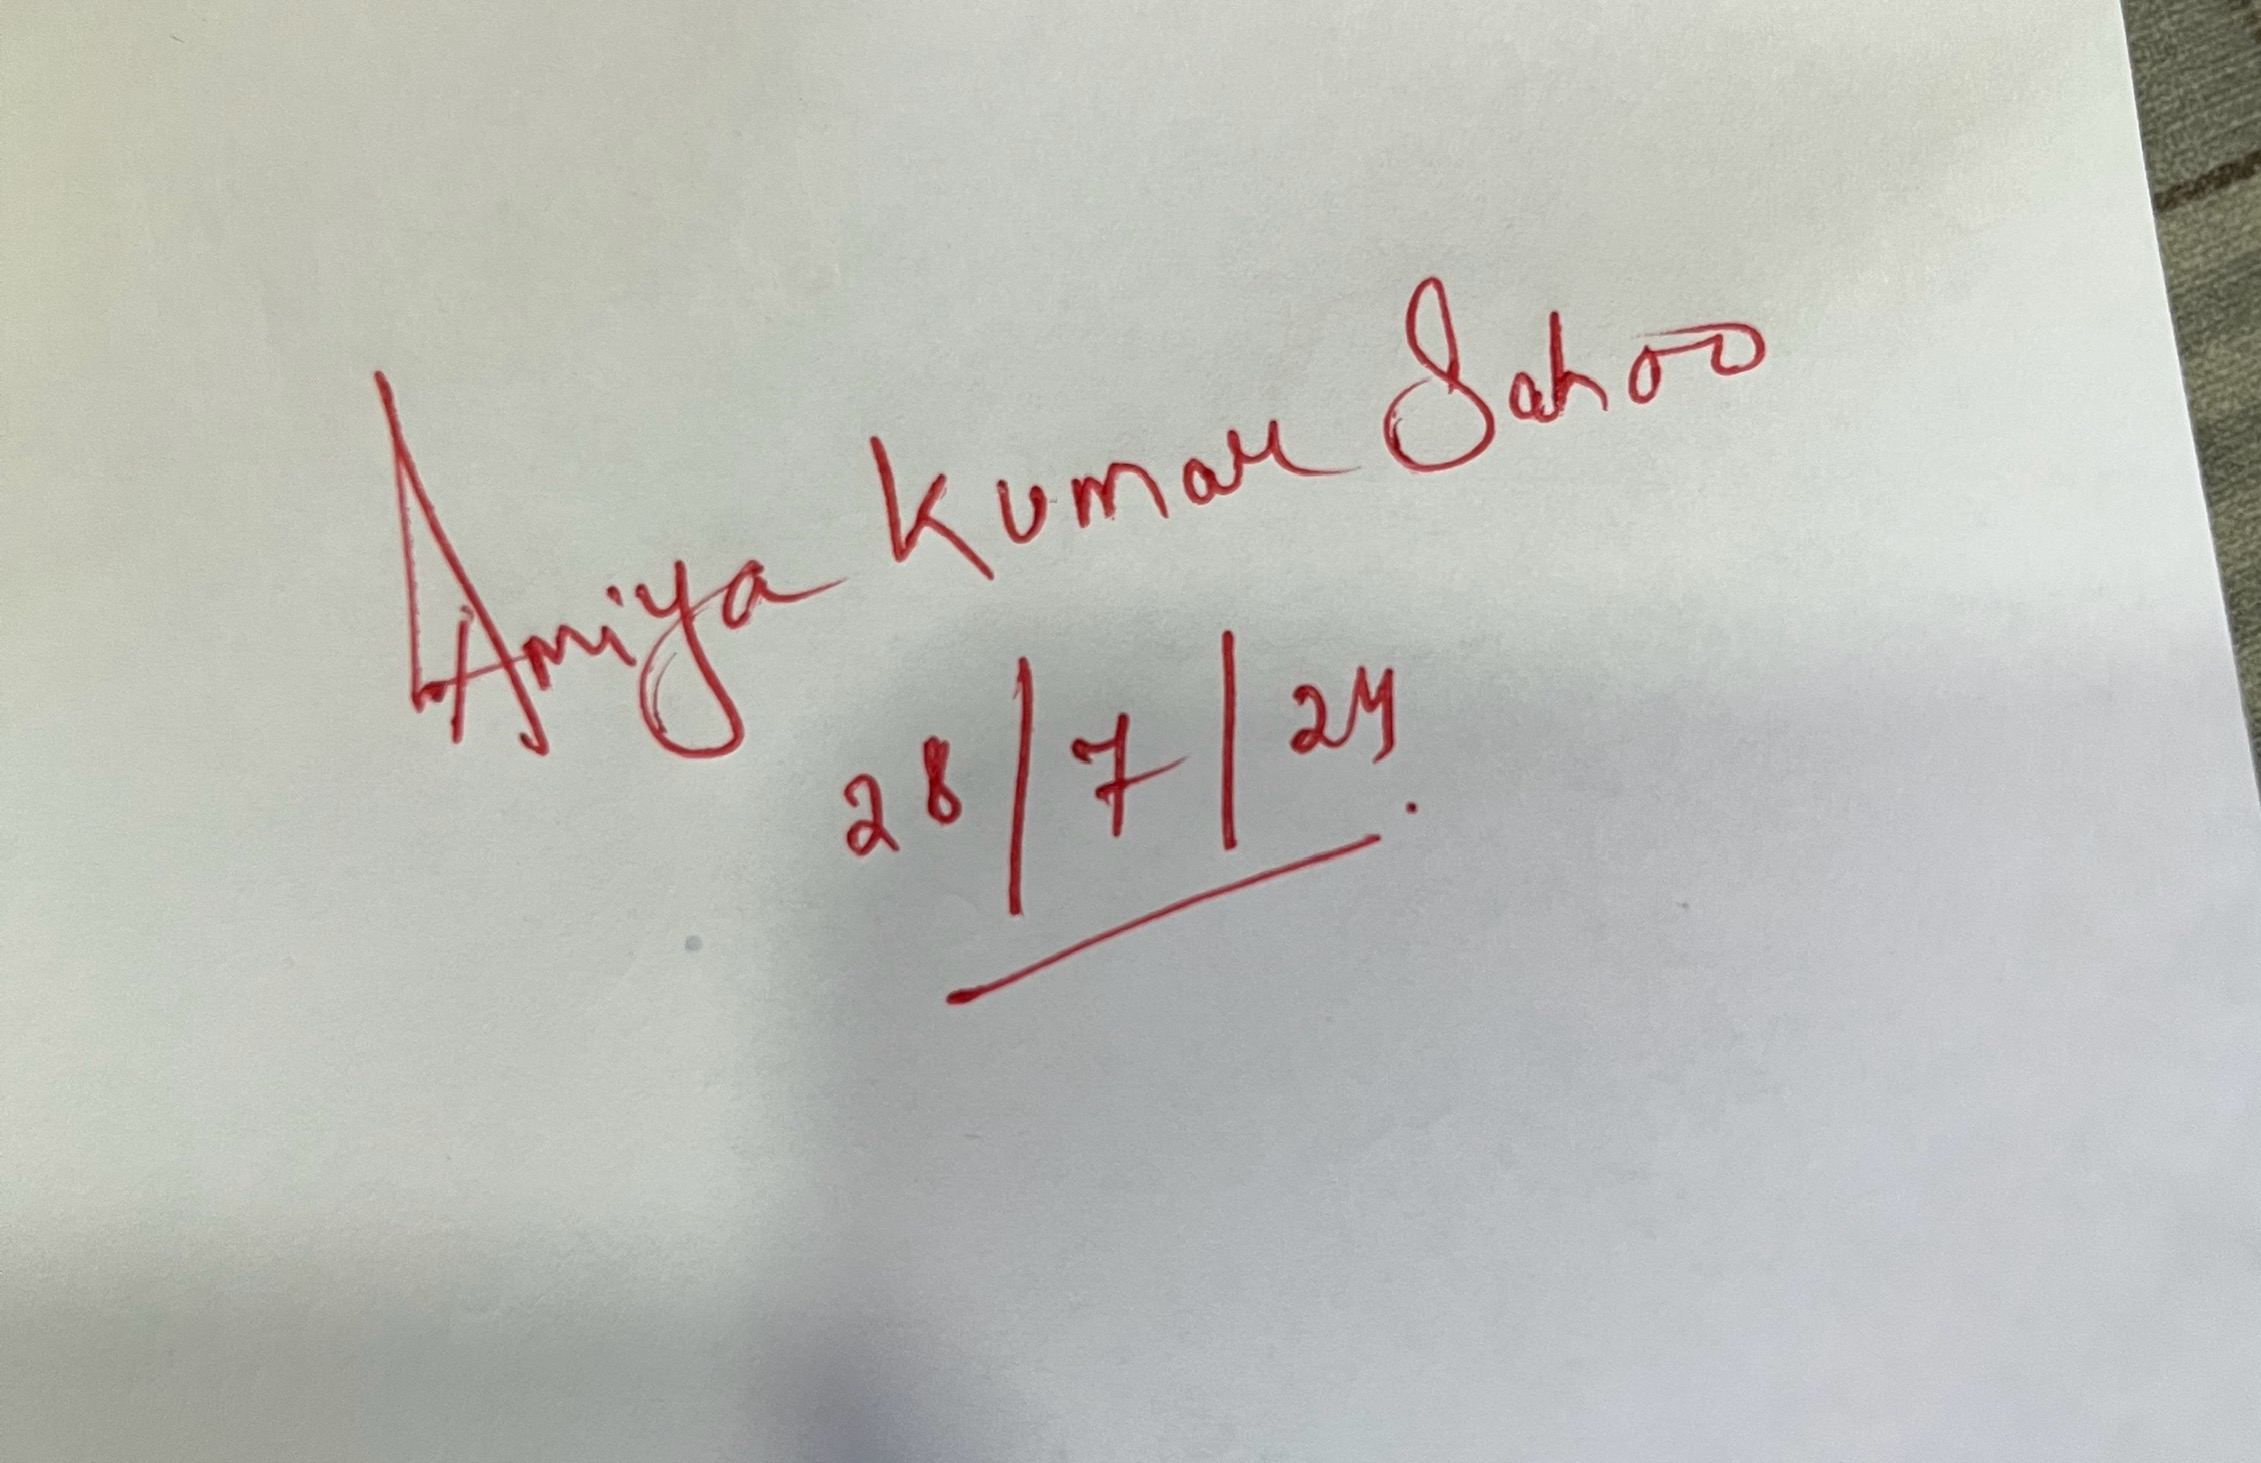 Amiya Kumar Sahoo
28/7/24.